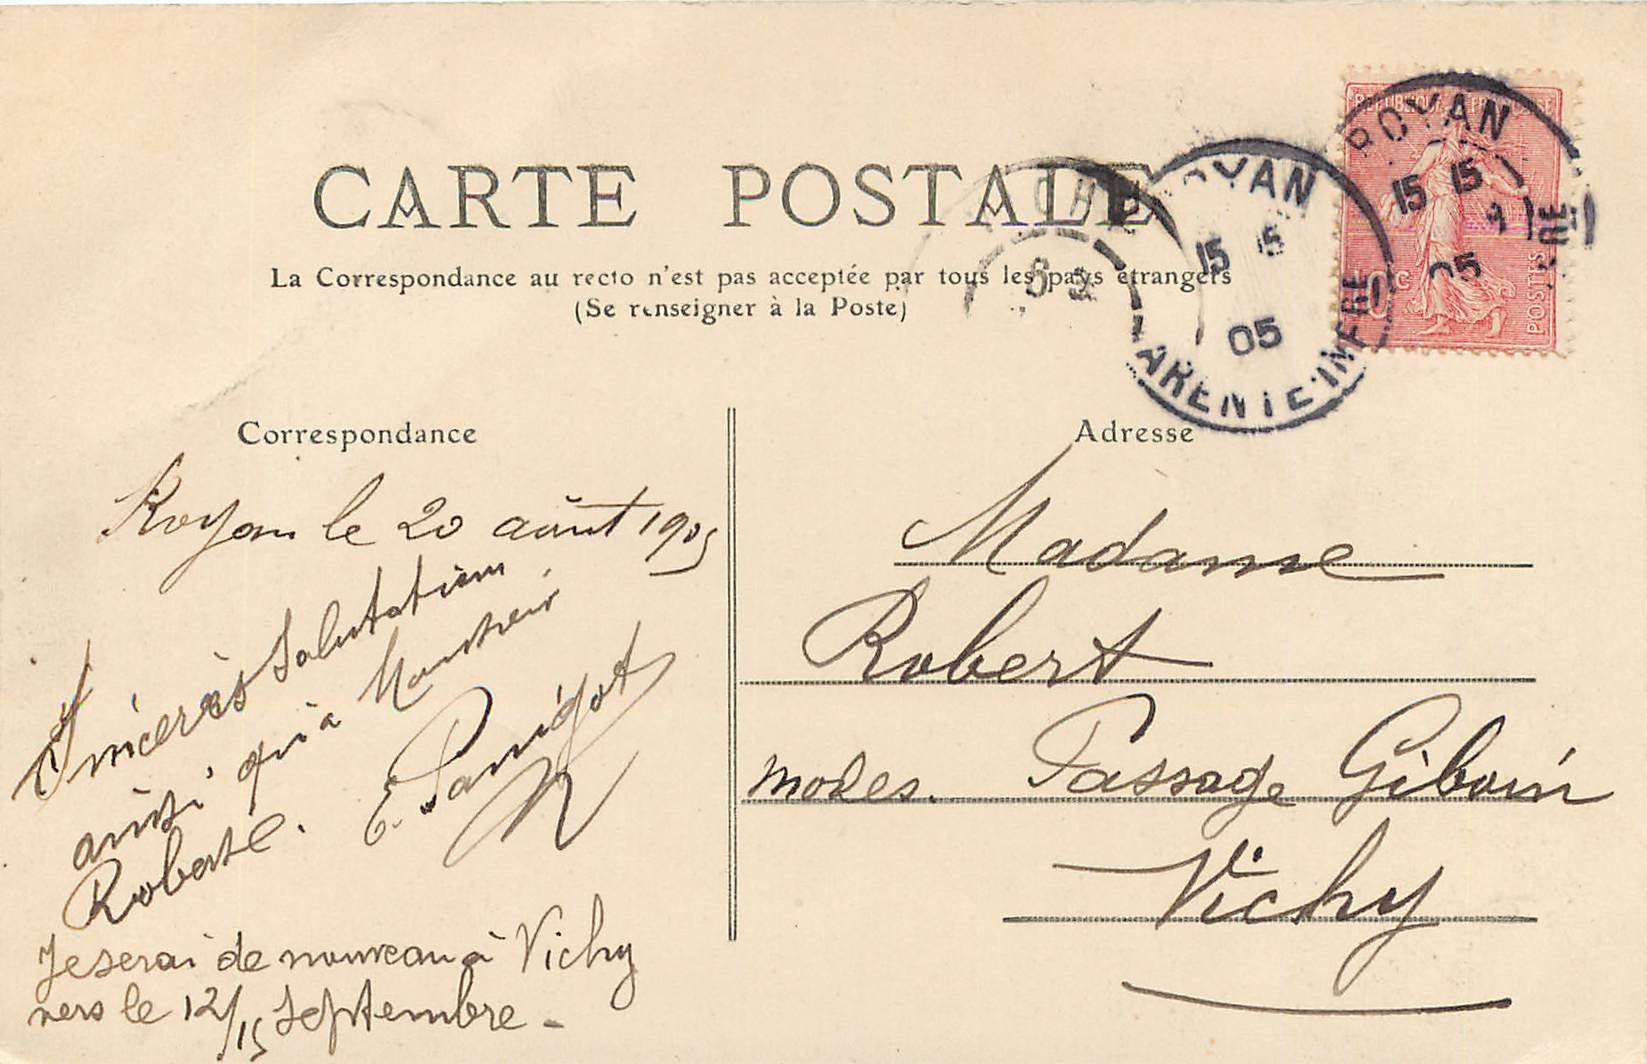 CARTE POSTALE
La Correspondance au recto n'est pas acceptée par tous les pays étrangers
(Se renseigner à la Poste)
REPUBLIQUE FRANÇAISE
10 c
POSTES
ROYAN
15 15
05
ROYAN
15 15
05
ARENTE-INFRE
Correspondance
Royan le 20 août 1905
Sincères Salutations
ainsi qu'à Monsieur
Robert.
Je serai de nouveau à Vichy
vers le 12/15 Septembre -
Adresse
Madame
Robert
modes. Passage Giboin
Vichy